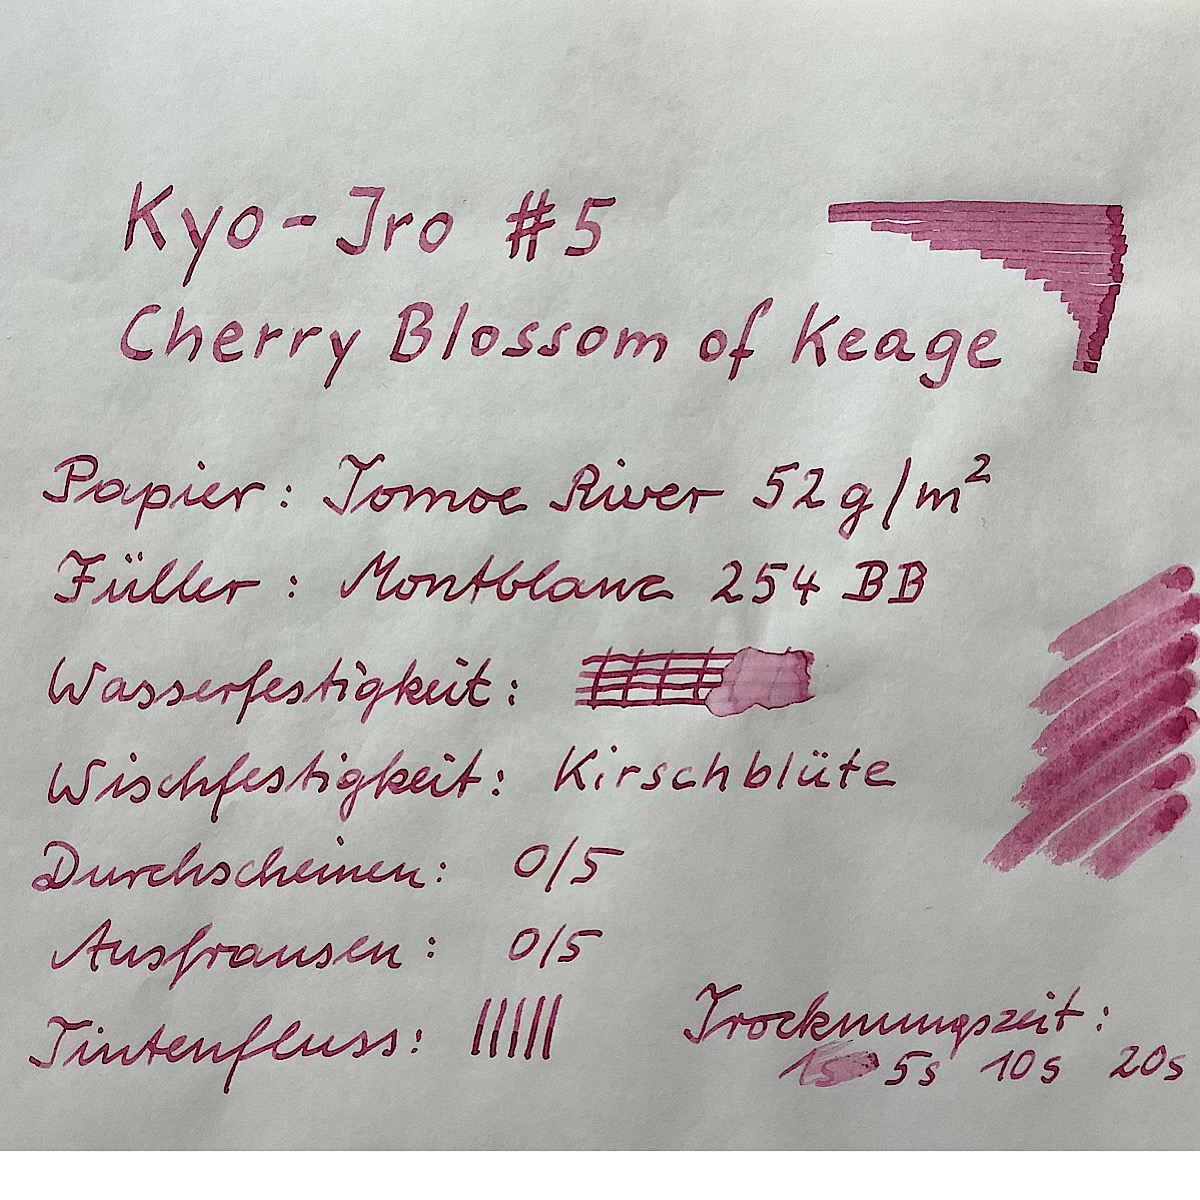 Kyo-Iro #5
Cherry Blossom of Keage
Papier: Tomoe River 52g/m²
Füller: Montblanc 254 BB
Wasserfestigkeit:
Wischfestigkeit: Kirschblüte
Durchscheinen: 0/5
Ausfransen: 0/5
Tintenfluss:
Trocknungszeit:
1s 5s 10s 20s